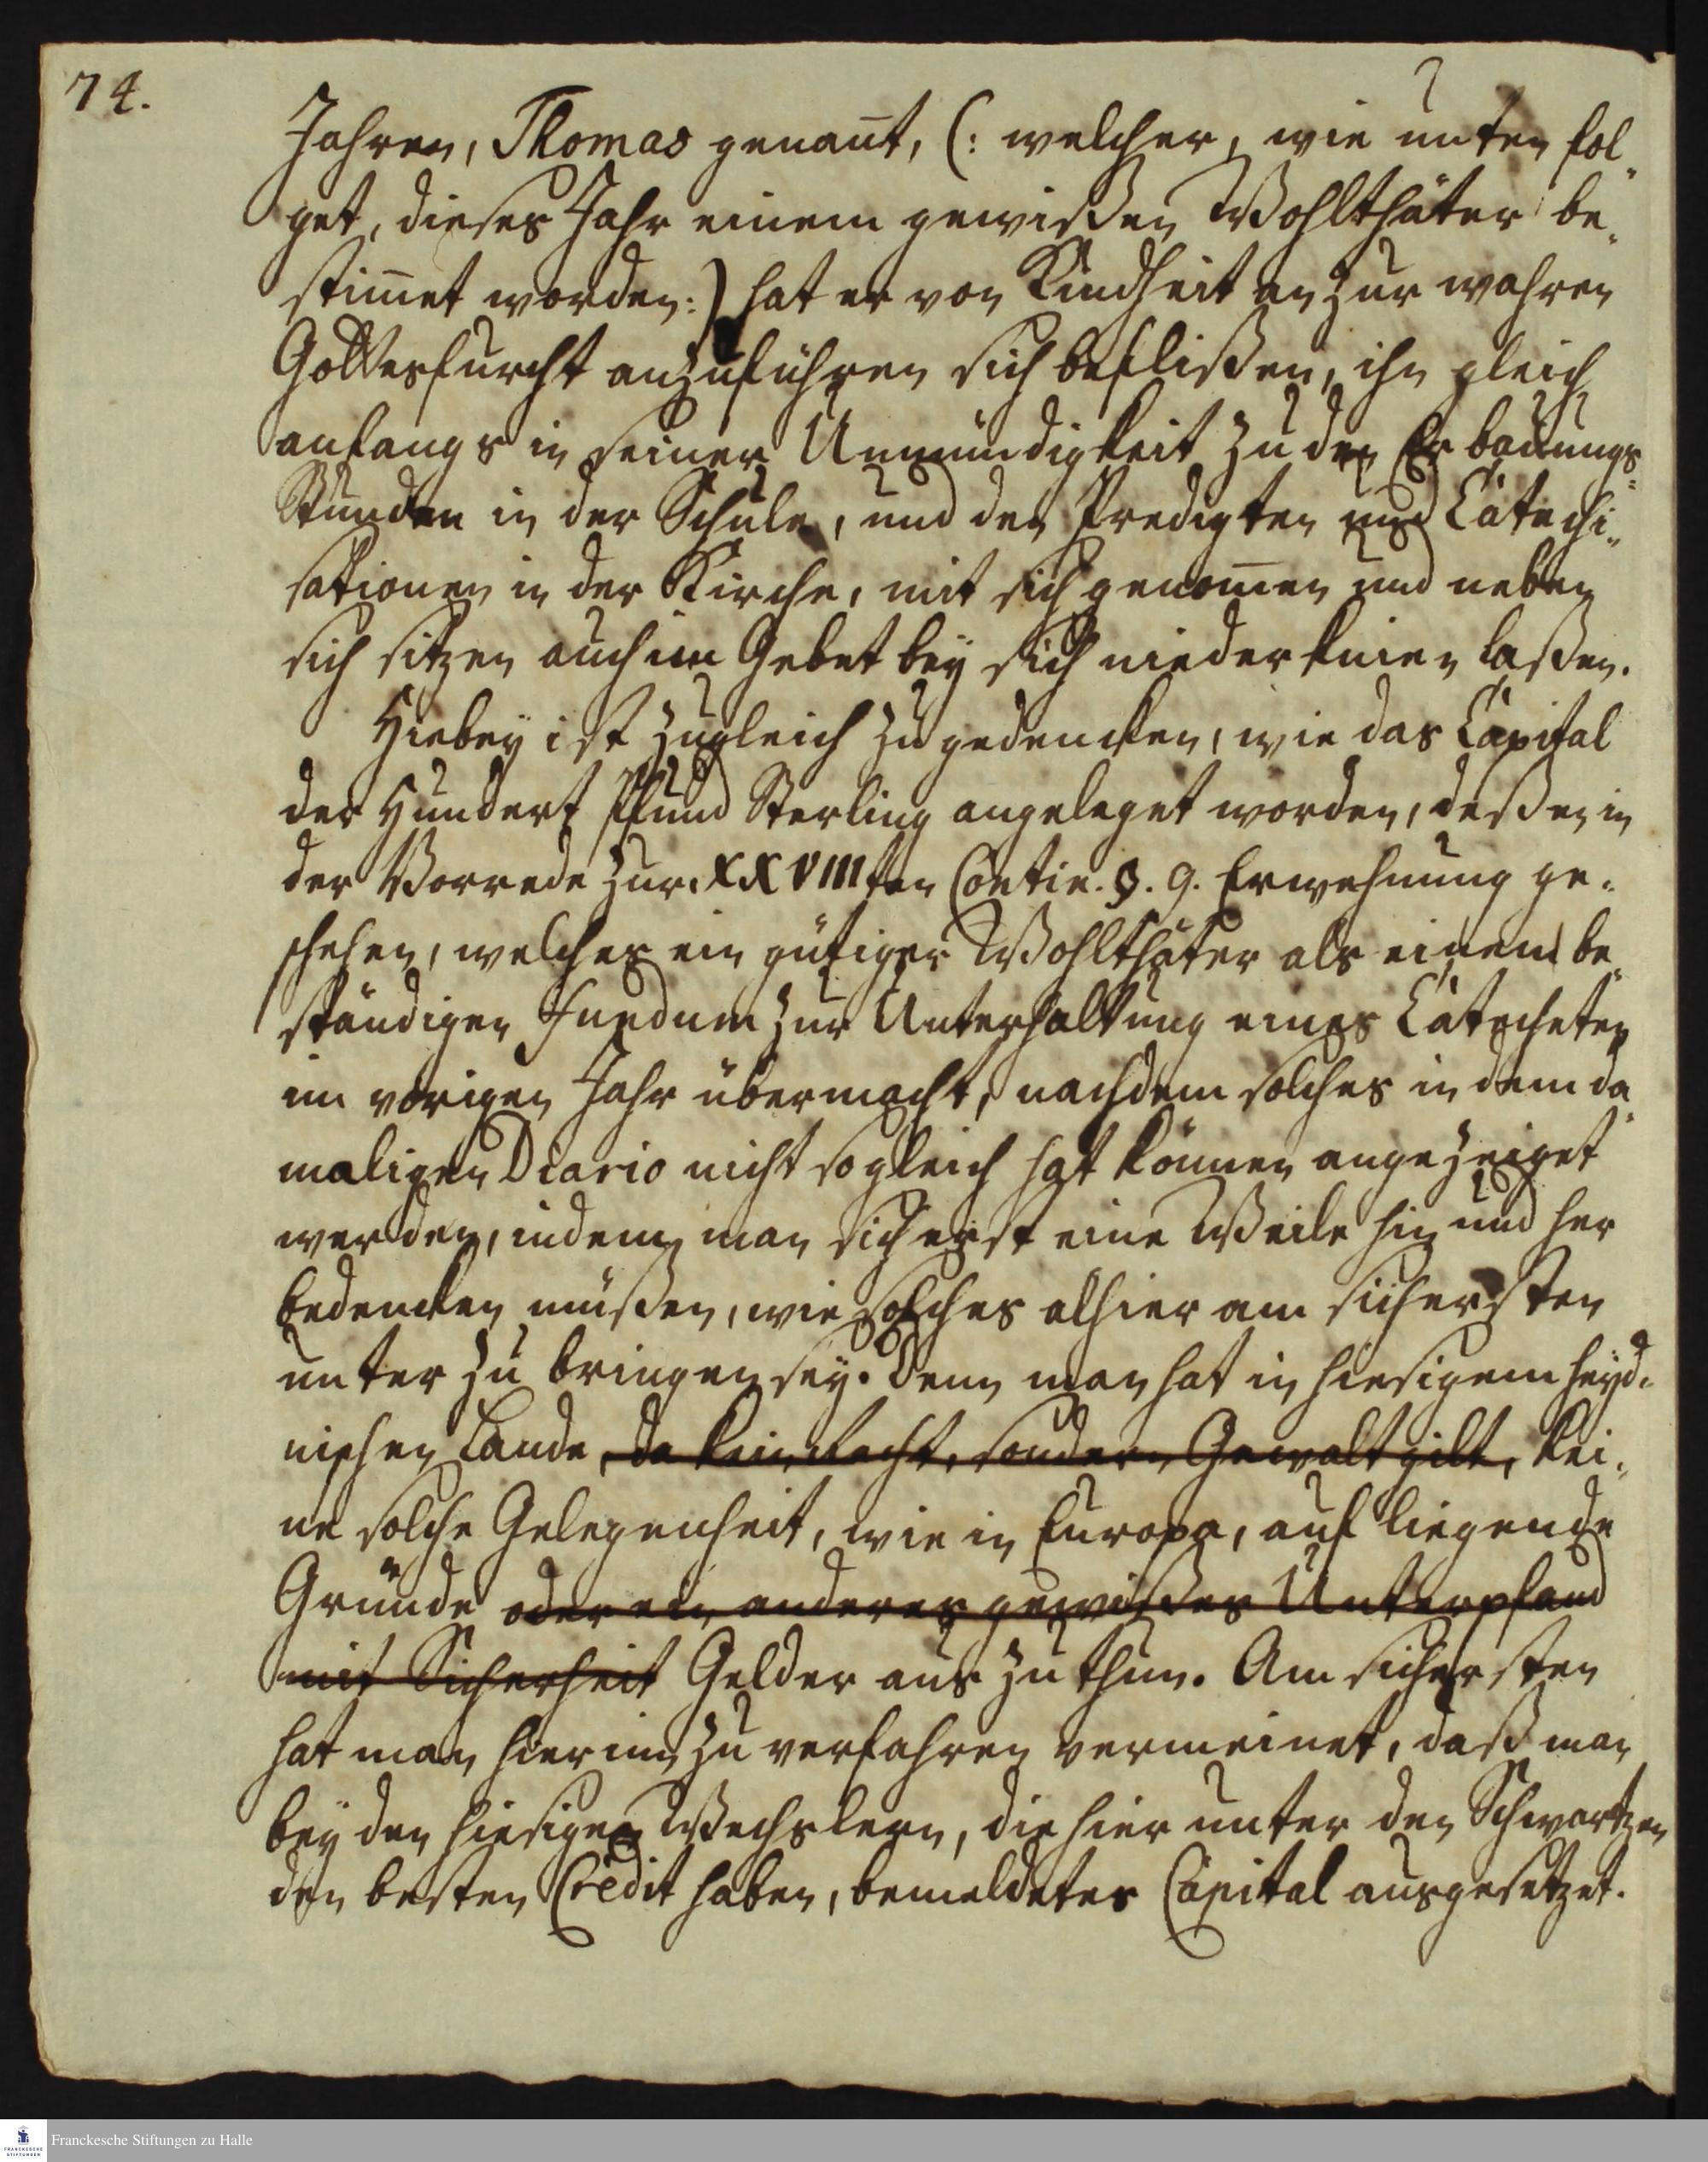 74.
Jahren, Thomas genan̄t, (: welcher, wie unten fol„
get, dieses Jahr einem gewißen Wohlthäter be„
stim̄et worden:) hat er von Kindheit an zur wahren
Gottesfurcht anzuführen sich beflißen, ihn gleich
anfangs in seiner Unmündigkeit zu den Erbauungs„
Stunden in der Schule, und den Predigten und Catechi„
sationen in der Kirche, mit sich genom̄en und neben
sich sitzen auch im Gebet bey sich niederknien laßen.
Hiebey ist zugleich zu gedencken, wie das Capital
der Hundert Pfund Sterling angeleget worden, deßen in
der Vorrede zur XXVIIIten Contin. §. 9. Erwehnung ge„
schehen, welches ein gütiger Wohlthäter als einen be„
ständigen Fundum zur Unterhaltung eines Catecheten
im vorigen Jahr übermacht, nachdem solches in dem da„
maligen Diario nicht sogleich hat können angezeiget
werden, indem man sich erst eine Weile hin und her
bedencken müßen, wie solches alhier am sichersten
unter zu bringen sey. Denn man hat in hiesigem heyd„
nischen Lande, da kein Recht, sondern Gewalt gilt, kei„
ne solche Gelegenheit, wie in Europa, auf liegende
Gründe oder ein anderes gewißes Unterpfand
mit Sicherheit Gelder aus zu thun. Am sichersten
hat man hierinn zu verfahren vermeinet, daß man
bey den hiesigen Wechslern, die hier unter den Schwartzen
den besten Credit haben, bemeldetes Capital ausgesetzet.
Franckesche Stiftungen zu Halle
FRANCKESCHE
STIFTUNGEN